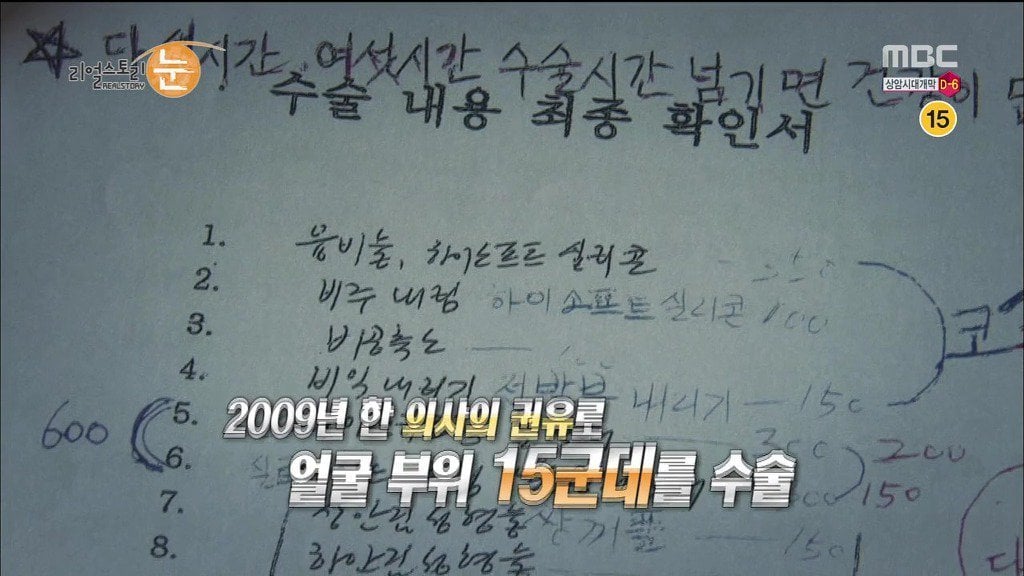 리얼스토리 눈
REALSTORY
MBC
상암시대개막 D-6
15
다섯시간, 여섯시간 수술시간 넘기면 건강이
수술 내용 최종 확인서
1. 융비술, 하이소프트 실리콘
2. 비주 내림 하이소프트 실리콘 100
3. 비공축소
4. 비익내리기 내리기 — 150
코
600
5. 300 200
6. 150
7. 상안검성형술 150
8. 하안검성형술
2009년 한 의사의 권유로
얼굴 부위 15군데를 수술